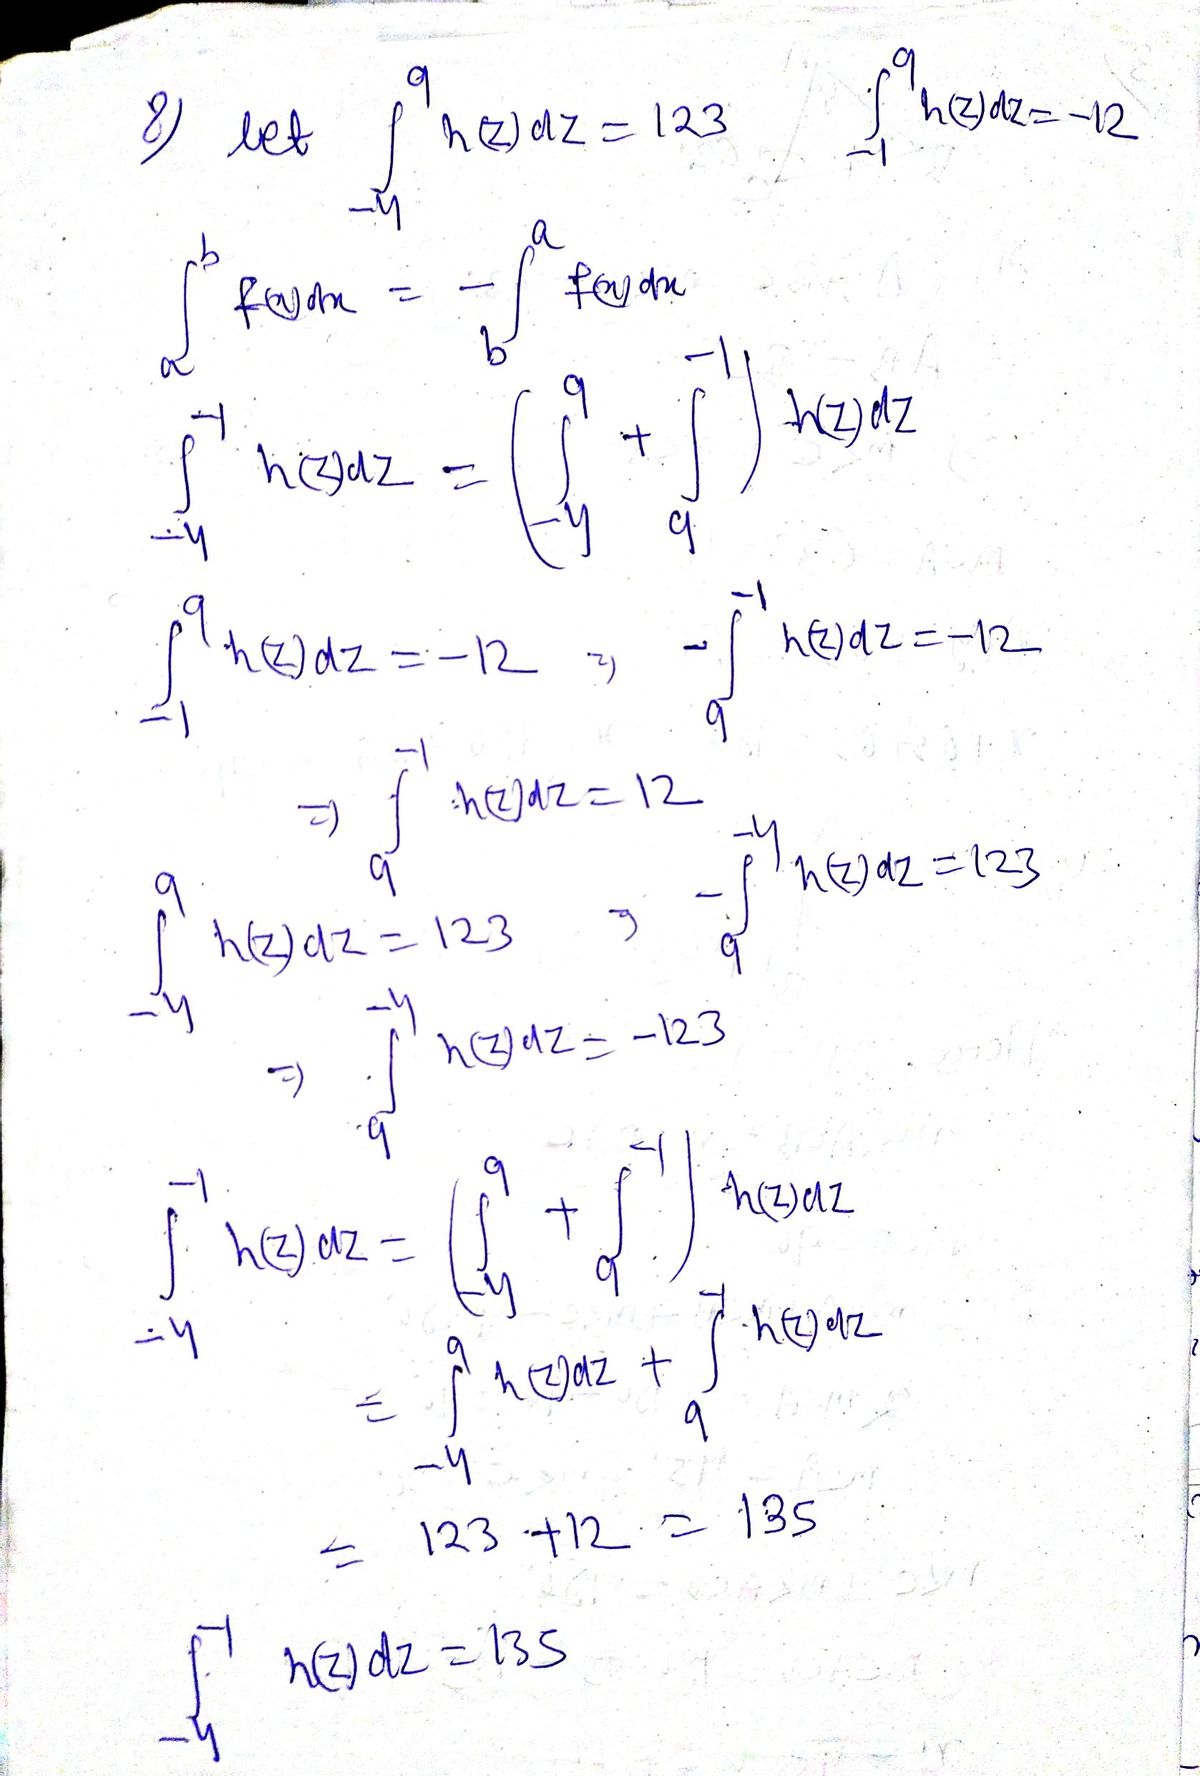 8) let ∫_{-4}^{9} h(z) dz = 123    ∫_{-1}^{9} h(z) dz = -12
∫_{a}^{b} f(x) dx = -∫_{b}^{a} f(x) dx
∫_{-4}^{-1} h(z) dz = (∫_{-4}^{9} + ∫_{9}^{-1}) h(z) dz
∫_{-1}^{9} h(z) dz = -12 ⇒ -∫_{9}^{-1} h(z) dz = -12
⇒ ∫_{9}^{-1} h(z) dz = 12
∫_{-4}^{9} h(z) dz = 123 ⇒ -∫_{9}^{-4} h(z) dz = 123
⇒ ∫_{9}^{-4} h(z) dz = -123
∫_{-4}^{-1} h(z) dz = (∫_{-4}^{9} + ∫_{9}^{-1}) h(z) dz
= ∫_{-4}^{9} h(z) dz + ∫_{9}^{-1} h(z) dz
= 123 + 12 = 135
∫_{-4}^{-1} h(z) dz = 135